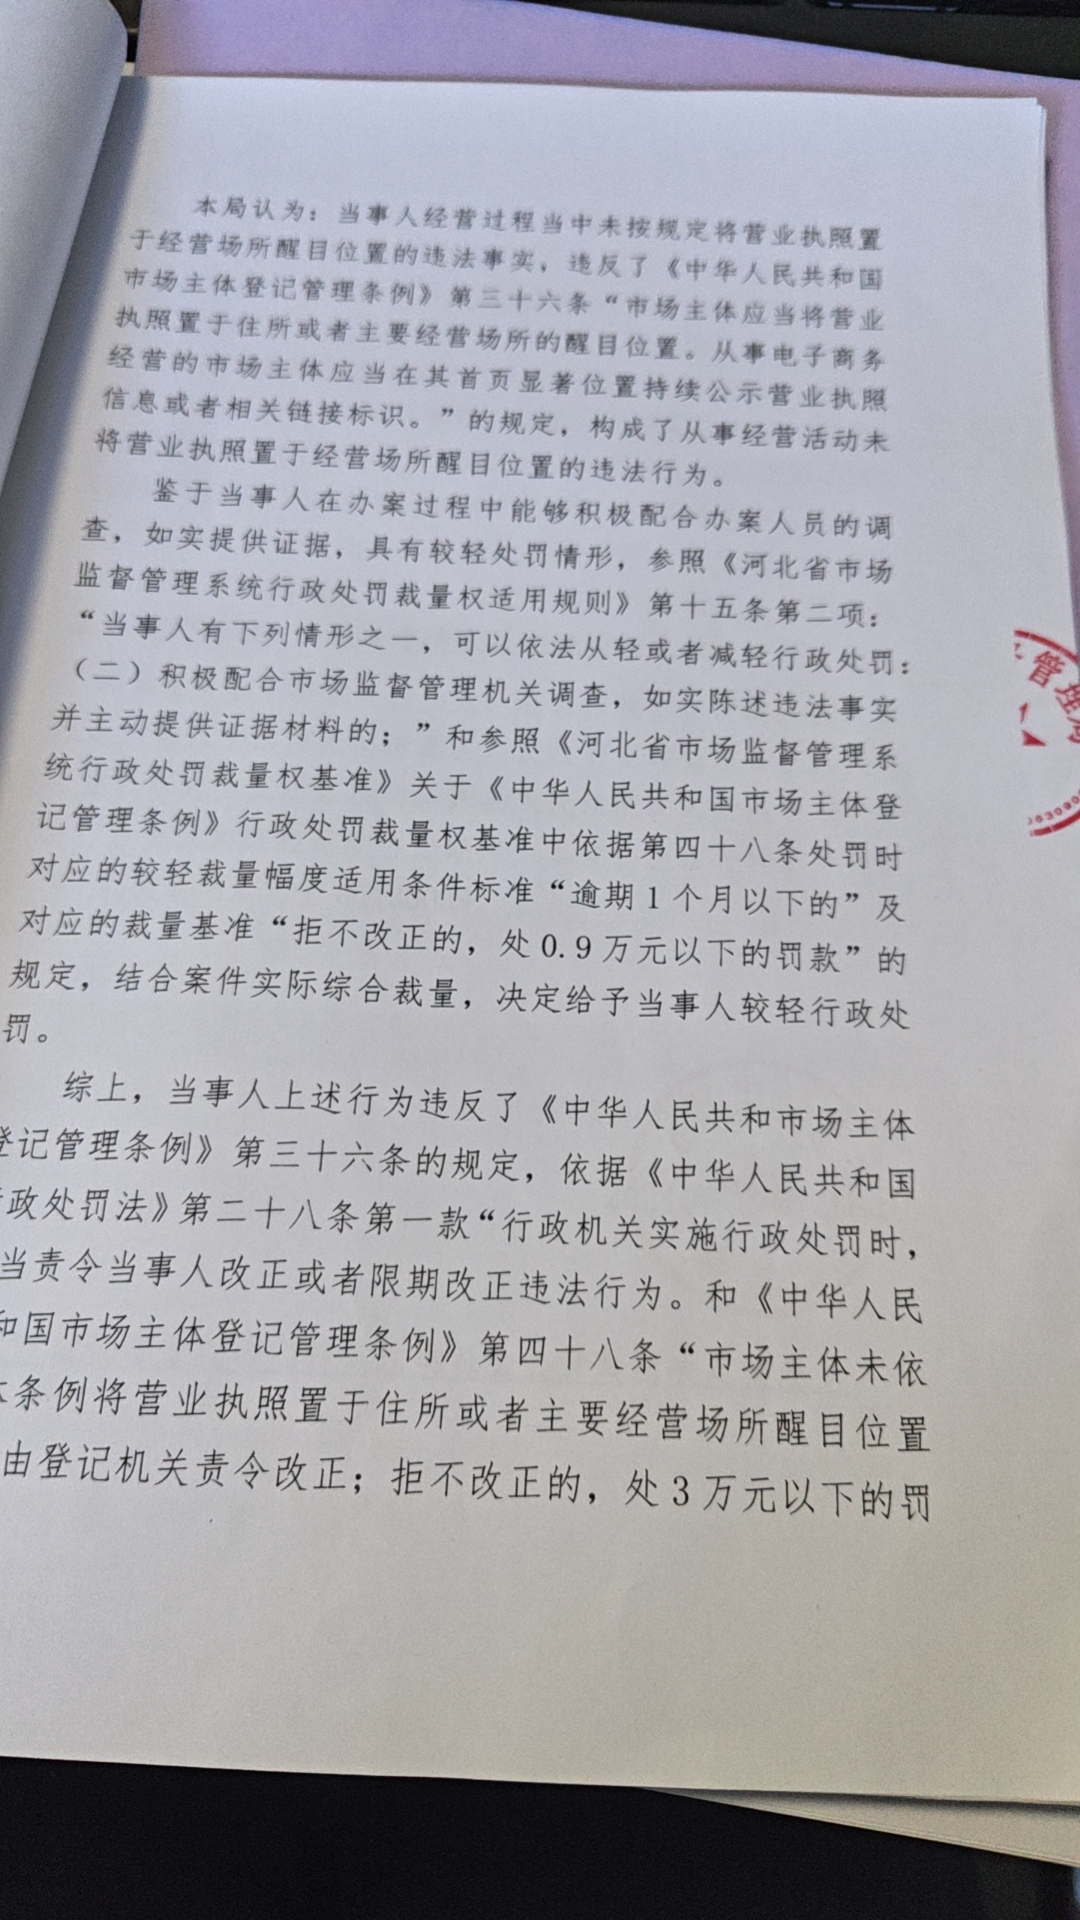 本局认为：当事人经营过程当中未按规定将营业执照置
于经营场所醒目位置的违法事实，违反了《中华人民共和国
市场主体登记管理条例》第三十六条“市场主体应当将营业
执照置于住所或者主要经营场所的醒目位置。从事电子商务
经营的市场主体应当在其首页显著位置持续公示营业执照
信息或者相关链接标识。”的规定，构成了从事经营活动未
将营业执照置于经营场所醒目位置的违法行为。
鉴于当事人在办案过程中能够积极配合办案人员的调
查，如实提供证据，具有较轻处罚情形，参照《河北省市场
监督管理系统行政处罚裁量权适用规则》第十五条第二项：
“当事人有下列情形之一，可以依法从轻或者减轻行政处罚：
（二）积极配合市场监督管理机关调查，如实陈述违法事实
并主动提供证据材料的；”和参照《河北省市场监督管理系
统行政处罚裁量权基准》关于《中华人民共和国市场主体登
记管理条例》行政处罚裁量权基准中依据第四十八条处罚时
对应的较轻裁量幅度适用条件标准“逾期1个月以下的”及
对应的裁量基准“拒不改正的，处0.9万元以下的罚款”的
规定，结合案件实际综合裁量，决定给予当事人较轻行政处
罚。
综上，当事人上述行为违反了《中华人民共和市场主体
登记管理条例》第三十六条的规定，依据《中华人民共和国
政处罚法》第二十八条第一款“行政机关实施行政处罚时，
当责令当事人改正或者限期改正违法行为。和《中华人民
和国市场主体登记管理条例》第四十八条“市场主体未依
本条例将营业执照置于住所或者主要经营场所醒目位置
由登记机关责令改正；拒不改正的，处3万元以下的罚
管理